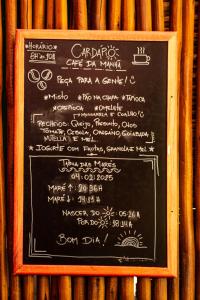 *HORÁRIO*
8H às 10H
CARDÁPIO
CAFÉ DA MANHÃ
PEÇA PARA A GENTE!
*MISTO *PÃO NA CHAPA *TAPIOCA
*CREPIOCA *OMELETE
MANTEIGA E COALHO
RECHEIOS: QUEIJO, PRESUNTO, OVOS
TOMATE, CEBOLA, ORÉGANO, GOIABADA
NUTELLA E MEL.
* IOGURTE COM FRUTAS, GRANOLA E MEL *
TÁBUA DAS MARÉS
04-02-2025
MARÉ ↑:
MARÉ ↓:
NASCER DO
PÔR DO
BOM DIA!